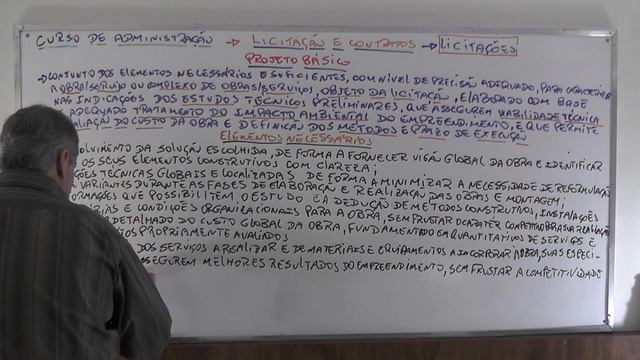 CURSO DE ADMINISTRAÇÃO → LICITAÇÃO E CONTRATOS → LICITAÇÕES
PROJETO BÁSICO
→ CONJUNTO DOS ELEMENTOS NECESSÁRIOS E SUFICIENTES, COM NÍVEL DE PRECISÃO ADEQUADO, PARA CARACTERIZAR
A OBRA/SERVIÇO OU COMPLEXO DE OBRAS/SERVIÇOS, OBJETO DA LICITAÇÃO, ELABORADO COM BASE
NAS INDICAÇÕES DOS ESTUDOS TÉCNICOS PRELIMINARES, QUE ASSEGUREM VIABILIDADE TÉCNICA
ADEQUADO TRATAMENTO DO IMPACTO AMBIENTAL DO EMPREENDIMENTO, E QUE PERMITE
DO CUSTO DA OBRA E DEFINIÇÃO DOS MÉTODOS E PRAZO DE EXECUÇÃO
ELEMENTOS NECESSÁRIOS
DA SOLUÇÃO ESCOLHIDA, DE FORMA A FORNECER VISÃO GLOBAL DA OBRA E IDENTIFICAR
OS SEUS ELEMENTOS CONSTRUTIVOS COM CLAREZA;
TÉCNICAS GLOBAIS E LOCALIZADAS DE FORMA A MINIMIZAR A NECESSIDADE DE REFORMULAÇÃO
VARIANTES DURANTE AS FASES DE ELABORAÇÃO E REALIZAÇÃO DAS OBRAS E MONTAGEM;
QUE POSSIBILITEM O ESTUDO E A DEDUÇÃO DE MÉTODOS CONSTRUTIVOS, INSTALAÇÕES
E CONDIÇÕES ORGANIZACIONAIS PARA A OBRA, SEM FRUSTAR O CARÁTER COMPETITIVO PARA SUA REALIZAÇÃO
DETALHADO DO CUSTO GLOBAL DA OBRA, FUNDAMENTADO EM QUANTITATIVOS DE SERVIÇOS E
PROPRIAMENTE AVALIADOS;
DOS SERVIÇOS A REALIZAR E DE MATERIAIS E EQUIPAMENTOS A INCORPORAR À OBRA, SUAS ESPECI-
MELHORES RESULTADOS DO EMPREENDIMENTO, SEM FRUSTAR A COMPETITIVIDADE